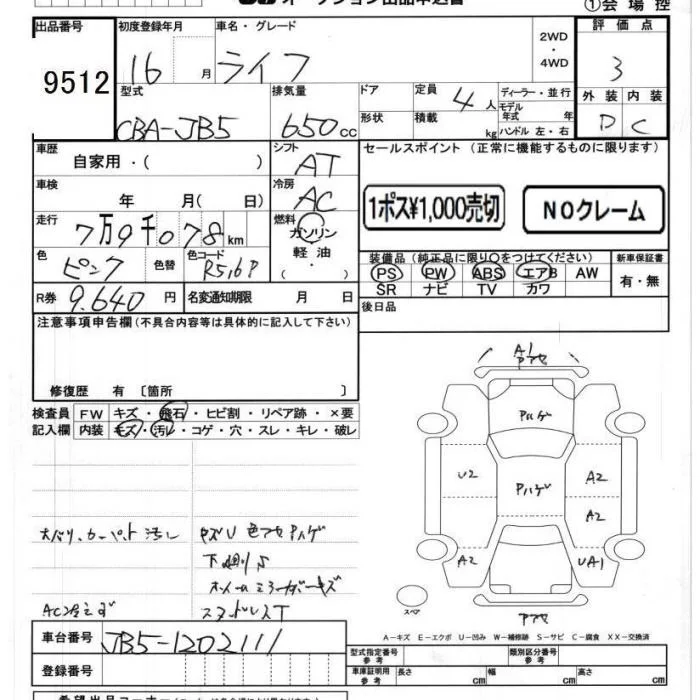 オークション出品申込書
①会場控
出品番号 初度登録年月 車名・グレード 2WD・4WD 評価点
9512 16月 ライフ 3
型式 排気量 ドア 定員 ディーラー・並行 外装 内装
CBA-JB5 650cc 4人 モデル年式 年 D C
形状 積載 kg ハンドル 左・右
車歴 シフト セールスポイント（正常に機能するものに限ります）
自家用・( ) AT
車検 冷房
年 月( 日) AC 1ポス¥1,000売切 NOクレーム
走行 燃料
7万9千078km ガソリン
軽油
色 色替 色コード 装備品（純正品に限り○をつけてください） 新車保証書
ピンク R516P PS PW ABS エアB AW 有・無
SR ナビ TV カワ
R券 9.640円 名変通知期限 月 日 後日品
注意事項申告欄（不具合内容等は具体的に記入して下さい）
修復歴 有 〔箇所 〕
検査員 FW キズ・飛石・ヒビ割・リペア跡・×要
記入欄 内装 キズ・汚レ・コゲ・穴・スレ・キレ・破レ
A1
アセ
Pハゲ
U2 Pハゲ A2
A2
A2 UA1
スペア
アセ
カーペット汚レ キズU 色アセ Pハゲ
下廻りS
AC冷えず
A－キズ E－エクボ U－凹み W－補修跡 S－サビ C－腐食 XX－交換済
車台番号 JB5-1202111 型式指定番号 参考 類別区分番号 参考
登録番号 車庫証明用 参考 長さ cm 幅 cm 高さ cm